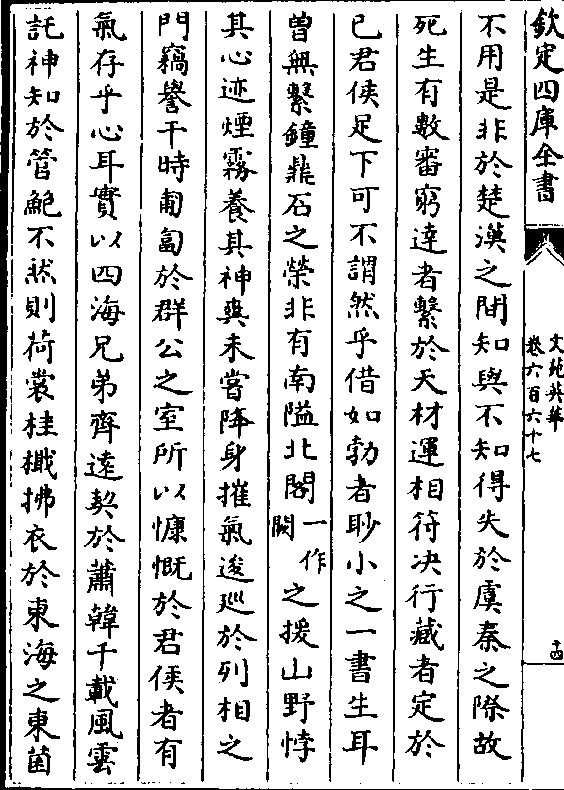 欽定四庫全書
文苑英華
卷六百六十七
十四
不用是非於楚漢之間知與不知得失於虞秦之際故
死生有數審窮達者繫於天材運相符决行藏者定於
已君侯足下可不謂然乎借如勃者眇小之一書生耳
曽無繫鐘鼎石之榮非有南隘北閣一作闕之援山野悖
其心迹煙霧養其神爽未嘗降身摧氣逡廵於列相之
門竊譽干時匍匐於群公之室所以慷慨於君侯者有
氣存乎心耳實以四海兄弟齊逺契於蕭韓千載風雲
託神知於管鮑不然則荷裳桂檝拂衣於東海之東菌